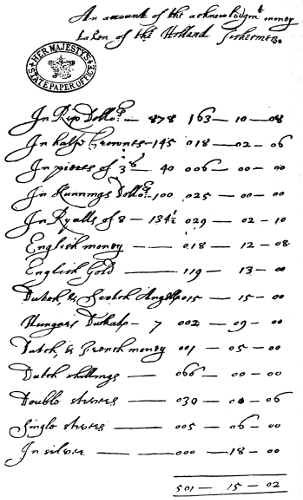 An account of the acknowledgmt money
taken of the Holland fishermen.
HER MAJESTYS STATE PAPER OFFICE
In Rix Dollors — 878 163 — 10 — 08
In halfe Crownes — 145 018 — 02 — 06
In pieces of 3s — 40 006 — 00 — 00
In Hunnings Dollors — 100 025 — 00 — 00
In Ryalls of 8 — 134½ 029 — 02 — 10
English money — 018 — 12 — 08
English Gold — 119 — 13 — 00
Dutch & Scotch Angells 015 — 15 — 00
Hungars Dukats — 7 002 — 09 — 00
Dutch & French money 001 — 05 — 00
Dutch shillings — 066 — 00 — 00
Double stivers — 039 — 00 — 06
Single stivers — 005 — 06 — 00
In silver — 000 — 18 — 00
501 — 15 — 02